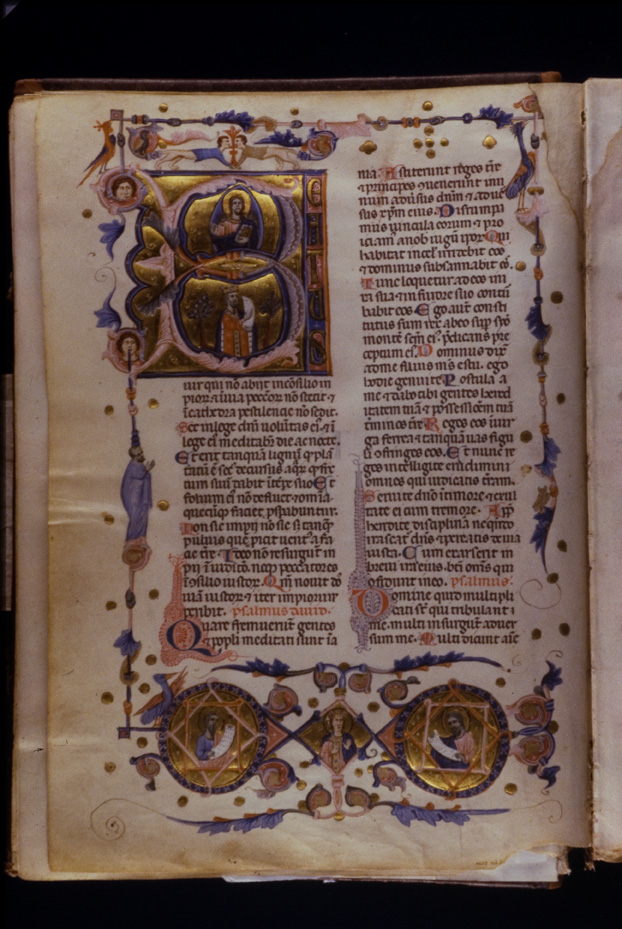 BEATUS
uir qui nō abiit incōsilio im
piorᷓ ⁊ iuia peccorᷓ nō stetit ⁊
icathedra pestilencie nō sedit.
Set inlege dnī uolūtas eiꝰ ⁊ ī
lege eiꝰ meditabᵗ die ac nocte.
Et erit tanquā lignū qᵈ plā
tatū ē sec decursus aqᷓrᷓ qᵈ fru
tum suū dabit ītēpe suo Et
folium eiꝰ nō defluet ⁊ omīa
quecūqᷓ faciet, pspabuntur.
Non sic impij nō sic sꝫ tanqᷓ
puluis quē picit uentꝰ a fa
cie tr̄e. Ideo nō resurgunt im
pij ī iudico. neqᷓ peccatores
īcōsilio iustorᷓ. Qm̄ nouit dn̄s
uiā iustorᷓ ⁊ iter impiorum
peribit. psalmus dauid.
Quare fremuerūt gentes
⁊ ppli meditati sunt ina
nia. Astiterunt reges tr̄e
⁊ principes ⁊ uenerunt inu
num aduīsus dnm̄ ⁊ aduer
sus xp̄m eius. Disrumpa
mus uincula eorum ⁊ pro
iciam̄ anob iugū ipor Qui
habitat incel irridebit eos
⁊ dominus subsannabit eōs.
Tunc loquetur ad eos in i
ra sua ⁊ in furore suo contū
babit eos Ego aut̄ consti
tutus sum rex abeo sup syō
montē sc̄m eiꝰ. p̄dicans pre
ceptum eiꝰ. Dominus dix̄
adme filius m̄s es tu. ego
hodie genui te Postula a
me ⁊ dabo tibi gentes hered
itatem tuā ⁊ possessioēm tuā
t̄minos tr̄e Reges eos inuir
ga ferrea ⁊ tanquā uas figu
li ofringes eos. Et nunc re
ges intelligite erudimini
omnes qui iudicatis tr̄am.
Seruite dn̄o intimore ⁊ exul
tate ei cum tremore. App
hendite disaplinā nequādo
irascatᵗ dn̄s ⁊ pereatis deuia
iusta. Cum exarserit in
breui ira eius. bti omn̄s qui
ofidunt ineo. psalmus.
Domine quid multipli
cati st̄ qui tribulant̄
me. multi insurgūt aduer
sum me. Multi dicunt aīe